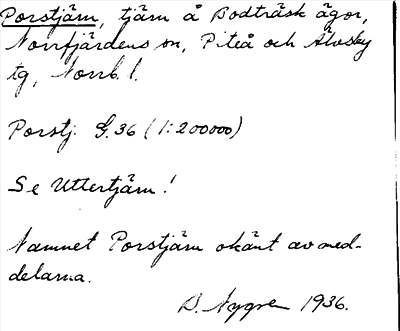 Porstjärn, tjärn å Bodträsk ägor,
Norrfjärdens sn, Piteå och Älvsby
tg, Norrb. l.
Porstj. G.36 (1:200000)
Se Uttertjärn!
Namnet Porstjärn okänt av med-
delarna.
B. Nygren 1936.